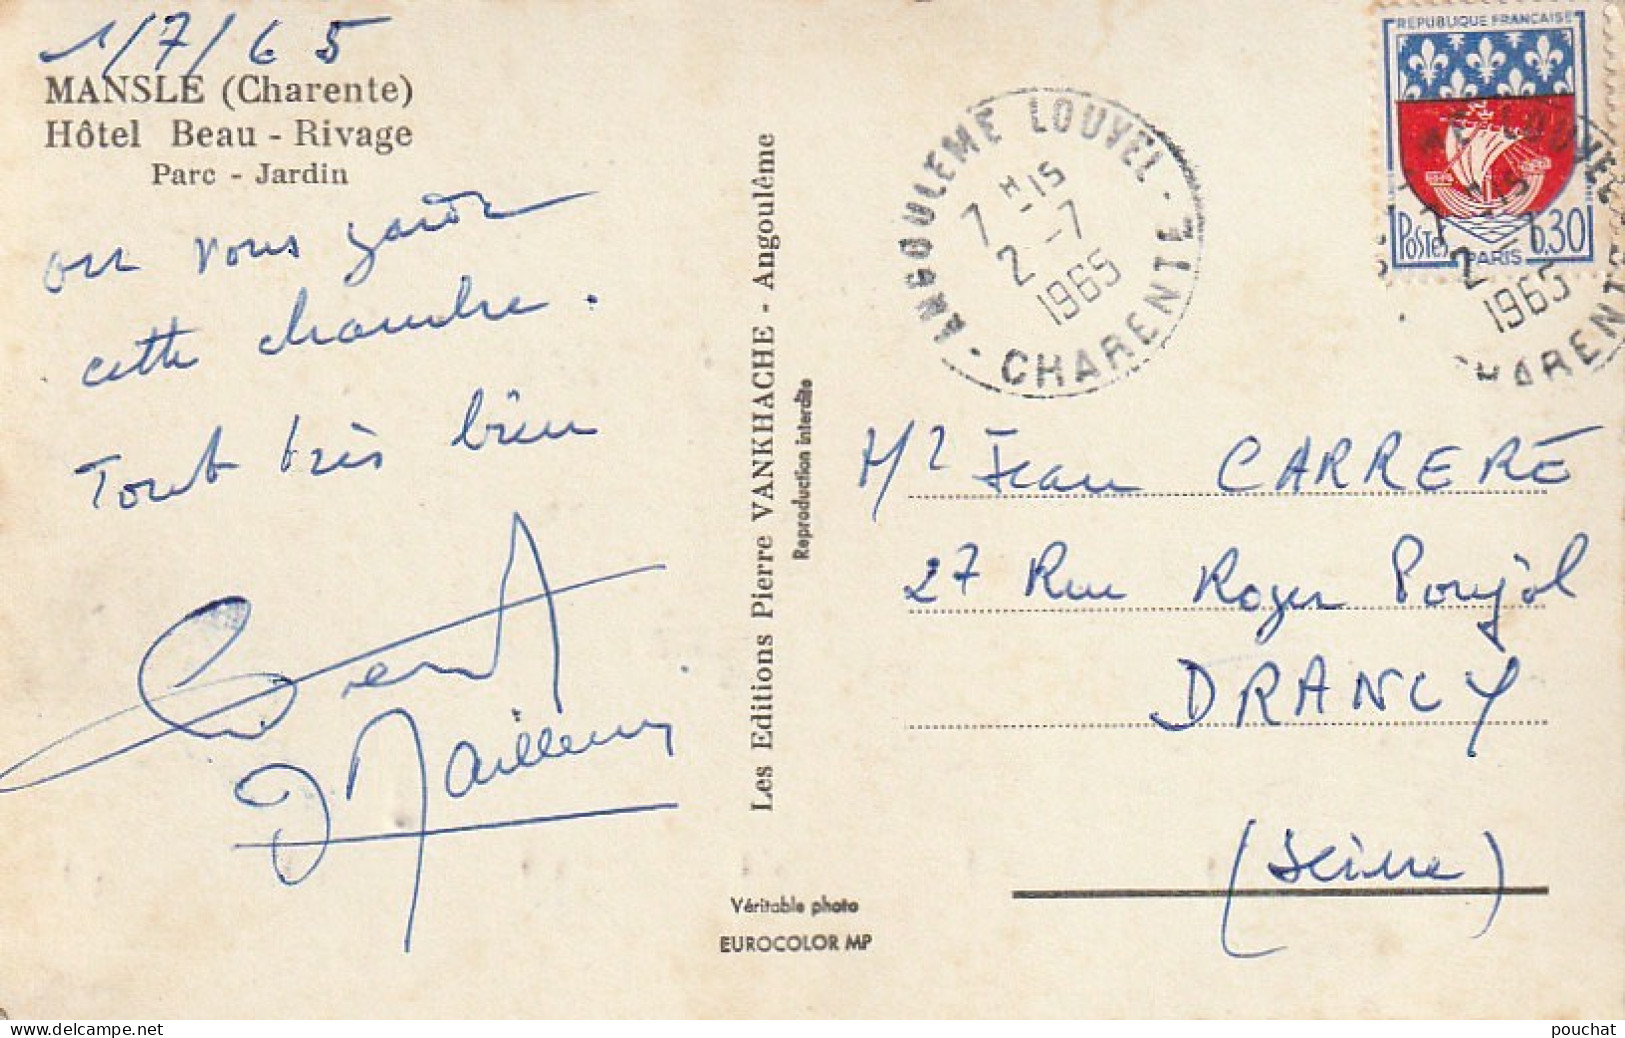 1/7/65
MANSLE (Charente)
Hôtel Beau - Rivage
Parc - Jardin
on vous garde
cette chambre.
Tout très bien
Mailleury
Les Editions Pierre VANKHACHE - Angoulême
Reproduction interdite
Véritable photo
EUROCOLOR MP
ANGOULEME LOUVEL
7 H 15
2 - 7
1965
CHARENTE
REPUBLIQUE FRANÇAISE
POSTES
0,30
PARIS
LOUVEL
7 15
2 - 7
1965
CHARENTE
Mr Jean CARRERE
27 Rue Roger Poujol
DRANCY
(Seine)
pouchat